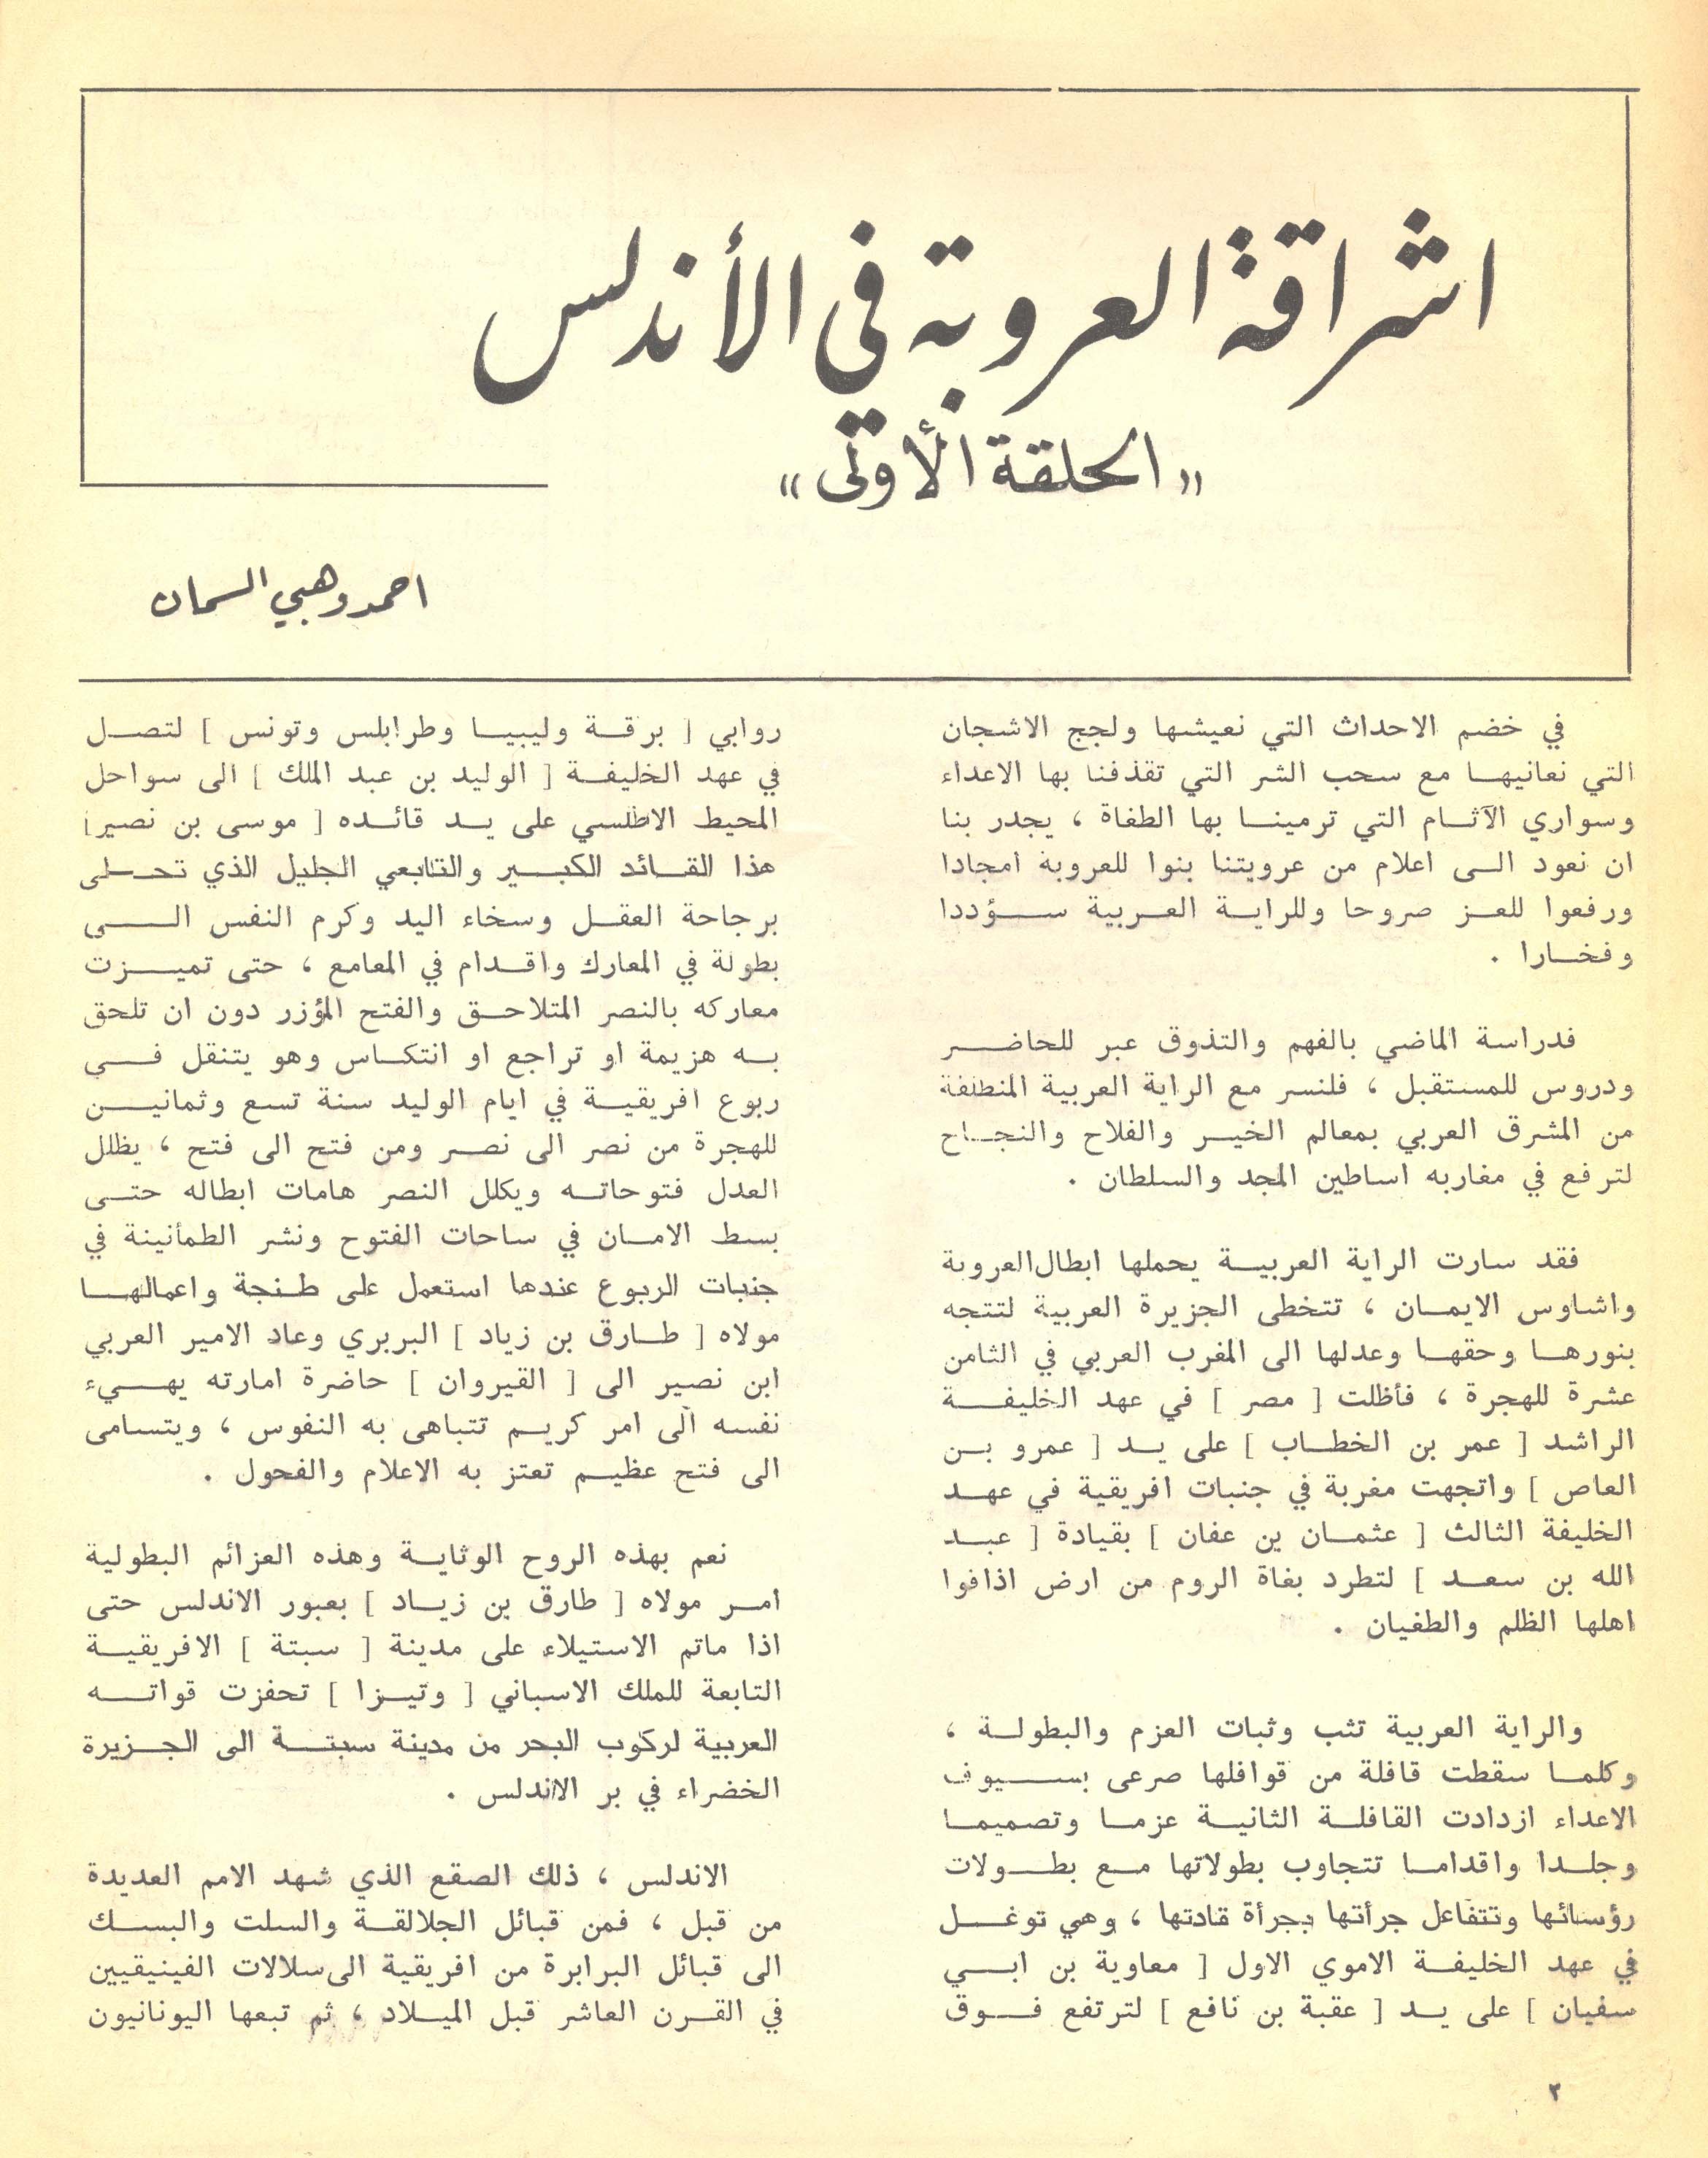 اشراقة العروبة في الأندلس
« الحلقة الأولى »
احمد وهبي السمان
في خضم الاحداث التي نعيشها ولجج الاشجان
التي نعانيها مع سحب الشر التي تقذفنا بها الاعداء
وسواري الآثام التي ترمينا بها الطفاة ، يجدر بنا
ان نعود الى اعلام من عروبتنا بنوا للعروبة امجادا
ورفعوا للعز صروحا وللراية العربية سؤددا
وفخارا .
فدراسة الماضي بالفهم والتذوق عبر للحاضر
ودروس للمستقبل ، فلنسر مع الراية العربية المنطلقة
من المشرق العربي بمعالم الخير والفلاح والنجاح
لترفع في مغاربه اساطين المجد والسلطان .
فقد سارت الراية العربية يحملها ابطال العروبة
واشاوس الايمان ، تتخطى الجزيرة العربية لتتجه
بنورها وحقها وعدلها الى المغرب العربي في الثامن
عشرة للهجرة ، فأظلت [ مصر ] في عهد الخليفة
الراشد [ عمر بن الخطاب ] على يد [ عمرو بن
العاص ] واتجهت مغربة في جنبات افريقية في عهد
الخليفة الثالث [ عثمان بن عفان ] بقيادة [ عبد
الله بن سعد ] لتطرد بغاة الروم من ارض اذاقوا
اهلها الظلم والطغيان .
والراية العربية تثب وثبات العزم والبطولة ،
وكلما سقطت قافلة من قوافلها صرعى بسيوف
الاعداء ازدادت القافلة الثانية عزما وتصميما
وجلدا واقداما تتجاوب بطولاتها مع بطولات
رؤسائها وتتفاعل جرأتها بجرأة قادتها ، وهي توغل
في عهد الخليفة الاموي الاول [ معاوية بن ابي
سفيان ] على يد [ عقبة بن نافع ] لترتفع فوق
روابي [ برقة وليبيا وطرابلس وتونس ] لتصل
في عهد الخليفة [ الوليد بن عبد الملك ] الى سواحل
المحيط الاطلسي على يد قائده [ موسى بن نصير]
هذا القائد الكبير والتابعي الجليل الذي تحلى
برجاحة العقل وسخاء اليد وكرم النفس الى
بطولة في المعارك واقدام في المعامع ، حتى تميزت
معاركه بالنصر المتلاحق والفتح المؤزر دون ان تلحق
به هزيمة او تراجع او انتكاس وهو يتنقل في
ربوع افريقية في ايام الوليد سنة تسع وثمانين
للهجرة من نصر الى نصر ومن فتح الى فتح ، يظلل
العدل فتوحاته ويكلل النصر هامات ابطاله حتى
بسط الامان في ساحات الفتوح ونشر الطمأنينة في
جنبات الربوع عندها استعمل على طنجة واعمالها
مولاه [ طارق بن زياد ] البربري وعاد الامير العربي
ابن نصير الى [ القيروان ] حاضرة امارته يهيء
نفسه الى امر كريم تتباهى به النفوس ، ويتسامى
الى فتح عظيم تعتز به الاعلام والفحول .
نعم بهذه الروح الوثابة وهذه العزائم البطولية
امر مولاه [ طارق بن زياد ] بعبور الاندلس حتى
اذا ماتم الاستيلاء على مدينة [ سبتة ] الافريقية
التابعة للملك الاسباني [ وتيزا ] تحفزت قواته
العربية لركوب البحر من مدينة سبتة الى الجزيرة
الخضراء في بر الاندلس .
الاندلس ، ذلك الصقع الذي شهد الامم العديدة
من قبل ، فمن قبائل الجلالقة والسلت والبسك
الى قبائل البرابرة من افريقية الى سلالات الفينيقيين
في القرن العاشر قبل الميلاد ، ثم تبعها اليونانيون
٢